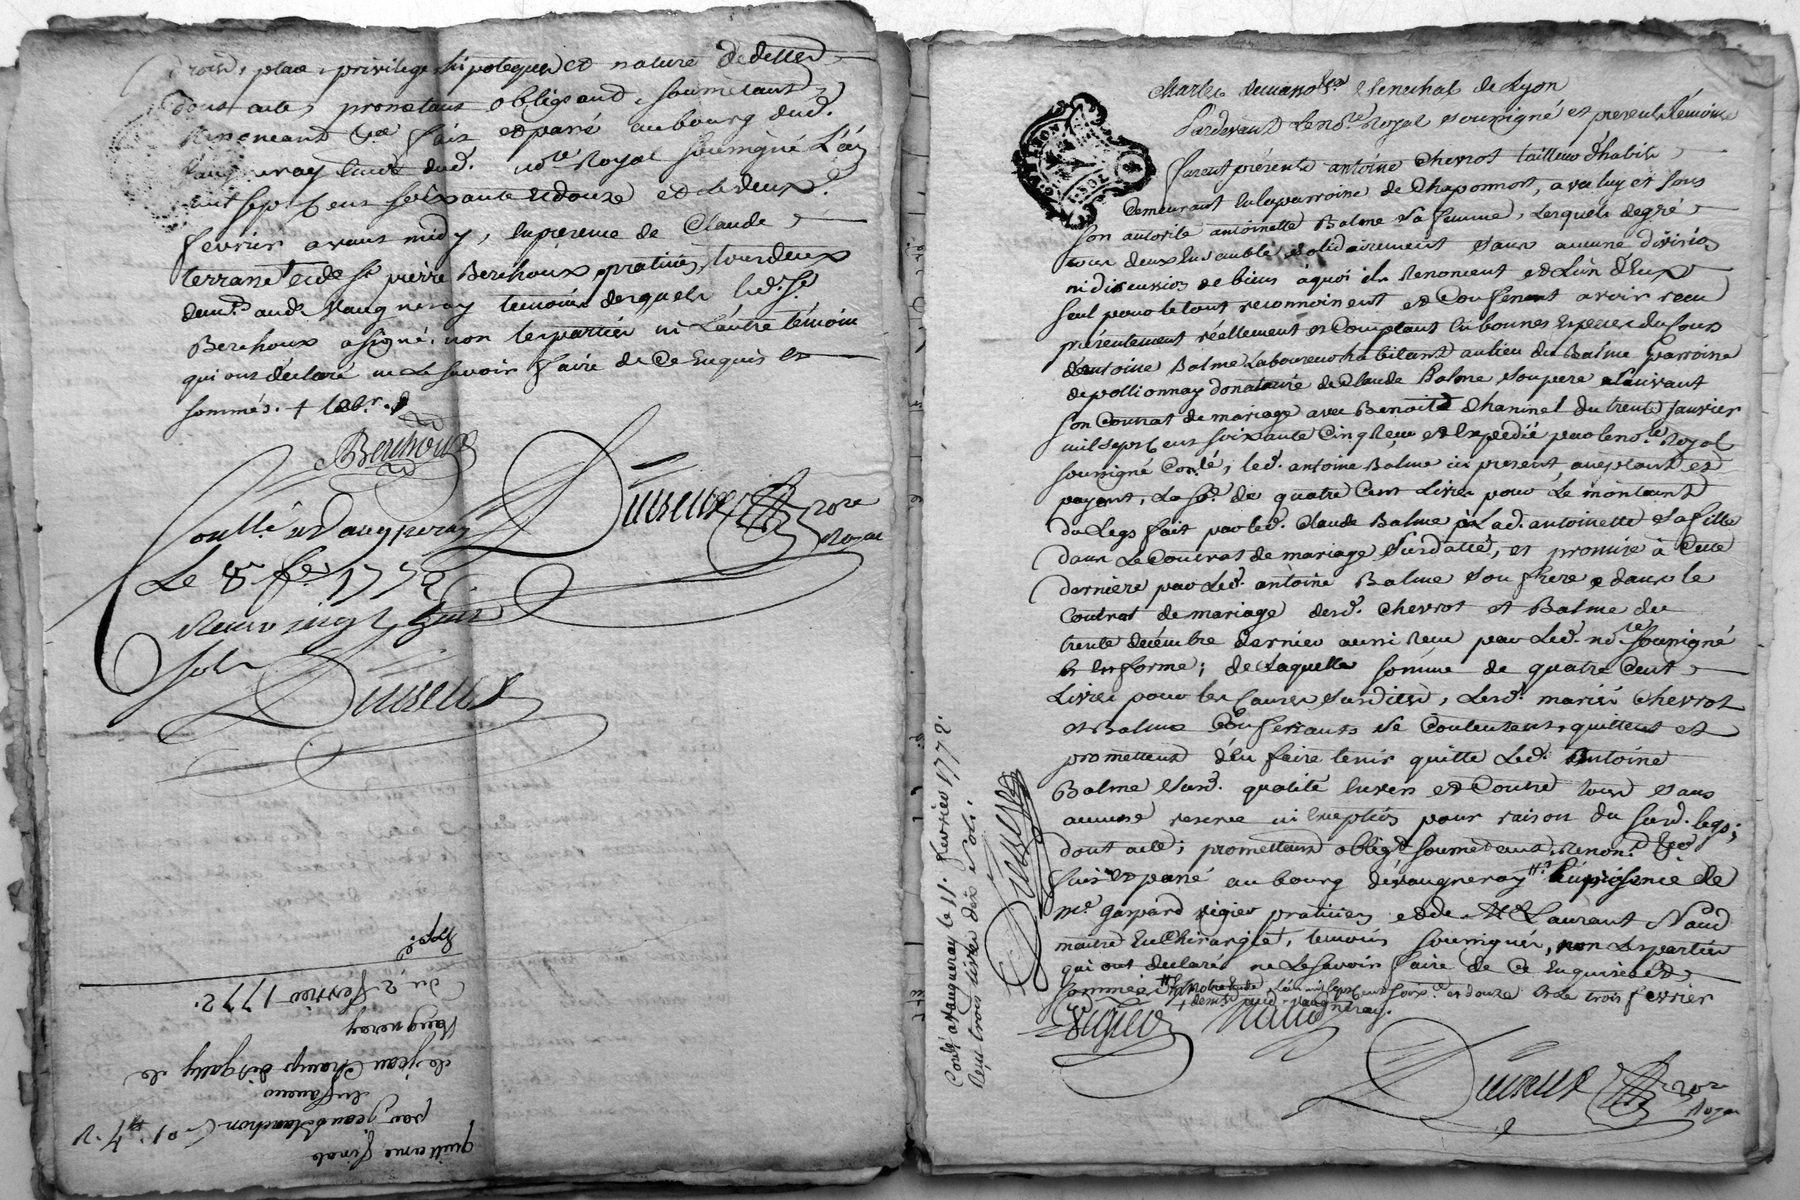 Droits, place, privilege hipoteques et nature de dettes
dont acte, prometant obligeant, soumetant,
Renonceant &ca fait et passé au bourg dud.
Vaugneray etude dud. no.re Royal soussigné L'an
mil sept cent soixante et douze et le deux
fevrier avant midy, en presence de Claude
terrane et de Sr. pierre Berchoux praticien, tous deux
demts. aud. Vaugneray temoins desquels led. Sr.
Berchoux a signé, non les parties ni l'autre témoin
qui ont déclaré ne le savoir faire de ce enquis et
sommés.
Berchoux
Duiseux nore
Royal
Conllé a Vaugneray
Le 8 fer 1772
Reçu vingt six
sols
Duiseux
quittance finale
par jean blanchon
en faveur
de jean Champ dit gally de
Vaugneray
Du 2 fevrier 1772.
Expé.
Charles de masso Sénéchal de Lyon
Pardevant Le no.re Royal soussigné et presents témoins
furent présents antoine Chevrot tailleur d'habits
demeurant en la parroisse de Chaponnost, avec luy et sous
son autorité antoinette Balme sa femme, Lesquels de gré
tous deux ensemble solidairement sans aucune division
ni discussion de biens a quoi ils renoncent et L'un d'Eux
seul pour le tout reconnoissent et Confessent avoir reçu
présentement réellement et Comptant en bonnes Especes du Cours
d'antoine Balme Laboureur habitant au lieu du Balme parroisse
de pollionnay donataire de Claude Balme son pere suivant
son Contrat de mariage avec Benoite Chaninel du trente janvier
mil sept Cent soixante Cinq Reçu et Expedié par le no.re Royal
soussigné Con.lé, led. antoine Balme ici present acceptant et
payant, La s.e de quatre Cent Livres pour Le montant
du Legs fait par led. Claude Balme à Lad. antoinette sa fille
dans Le Contrat de mariage susdatté, et promise à Cette
derniere par Led. antoine Balme son frere dans le
Contrat de mariage desd. Chevrot et Balme du
trente decembre dernier aussi Reçu par Led. no.re soussigné
en forme; de Laquelle somme de quatre Cent
Livres pour les Causes susdites, Lesd. mariés Chevrot
et Balme Confessants se Contentent, quittent et
promettent d'en faire tenir quitte Led. Antoine
Balme susd. qualité envers et Contre tous sans
aucune reserve ni exception pour raison du susd. legs;
dont acte; promettant oblig.t soumettant, Renon.t &ca
fait et passé au bourg de vaugneray en présence de
me. gaspard vigier praticien et de Me. Laurant Naud
maitre En Chirurgie, temoins soussignés, non Les parties
qui ont declaré ne Le savoir faire de Ce Enquises et
sommées L'an mil sept cent soix.te et douze et Le trois fevrier
Vigier Naud
Duiseux nore
Royal
Contlé a Vaugneray le 11. fevrier 1772.
Reçu trois livres dix sols.
Duiseux